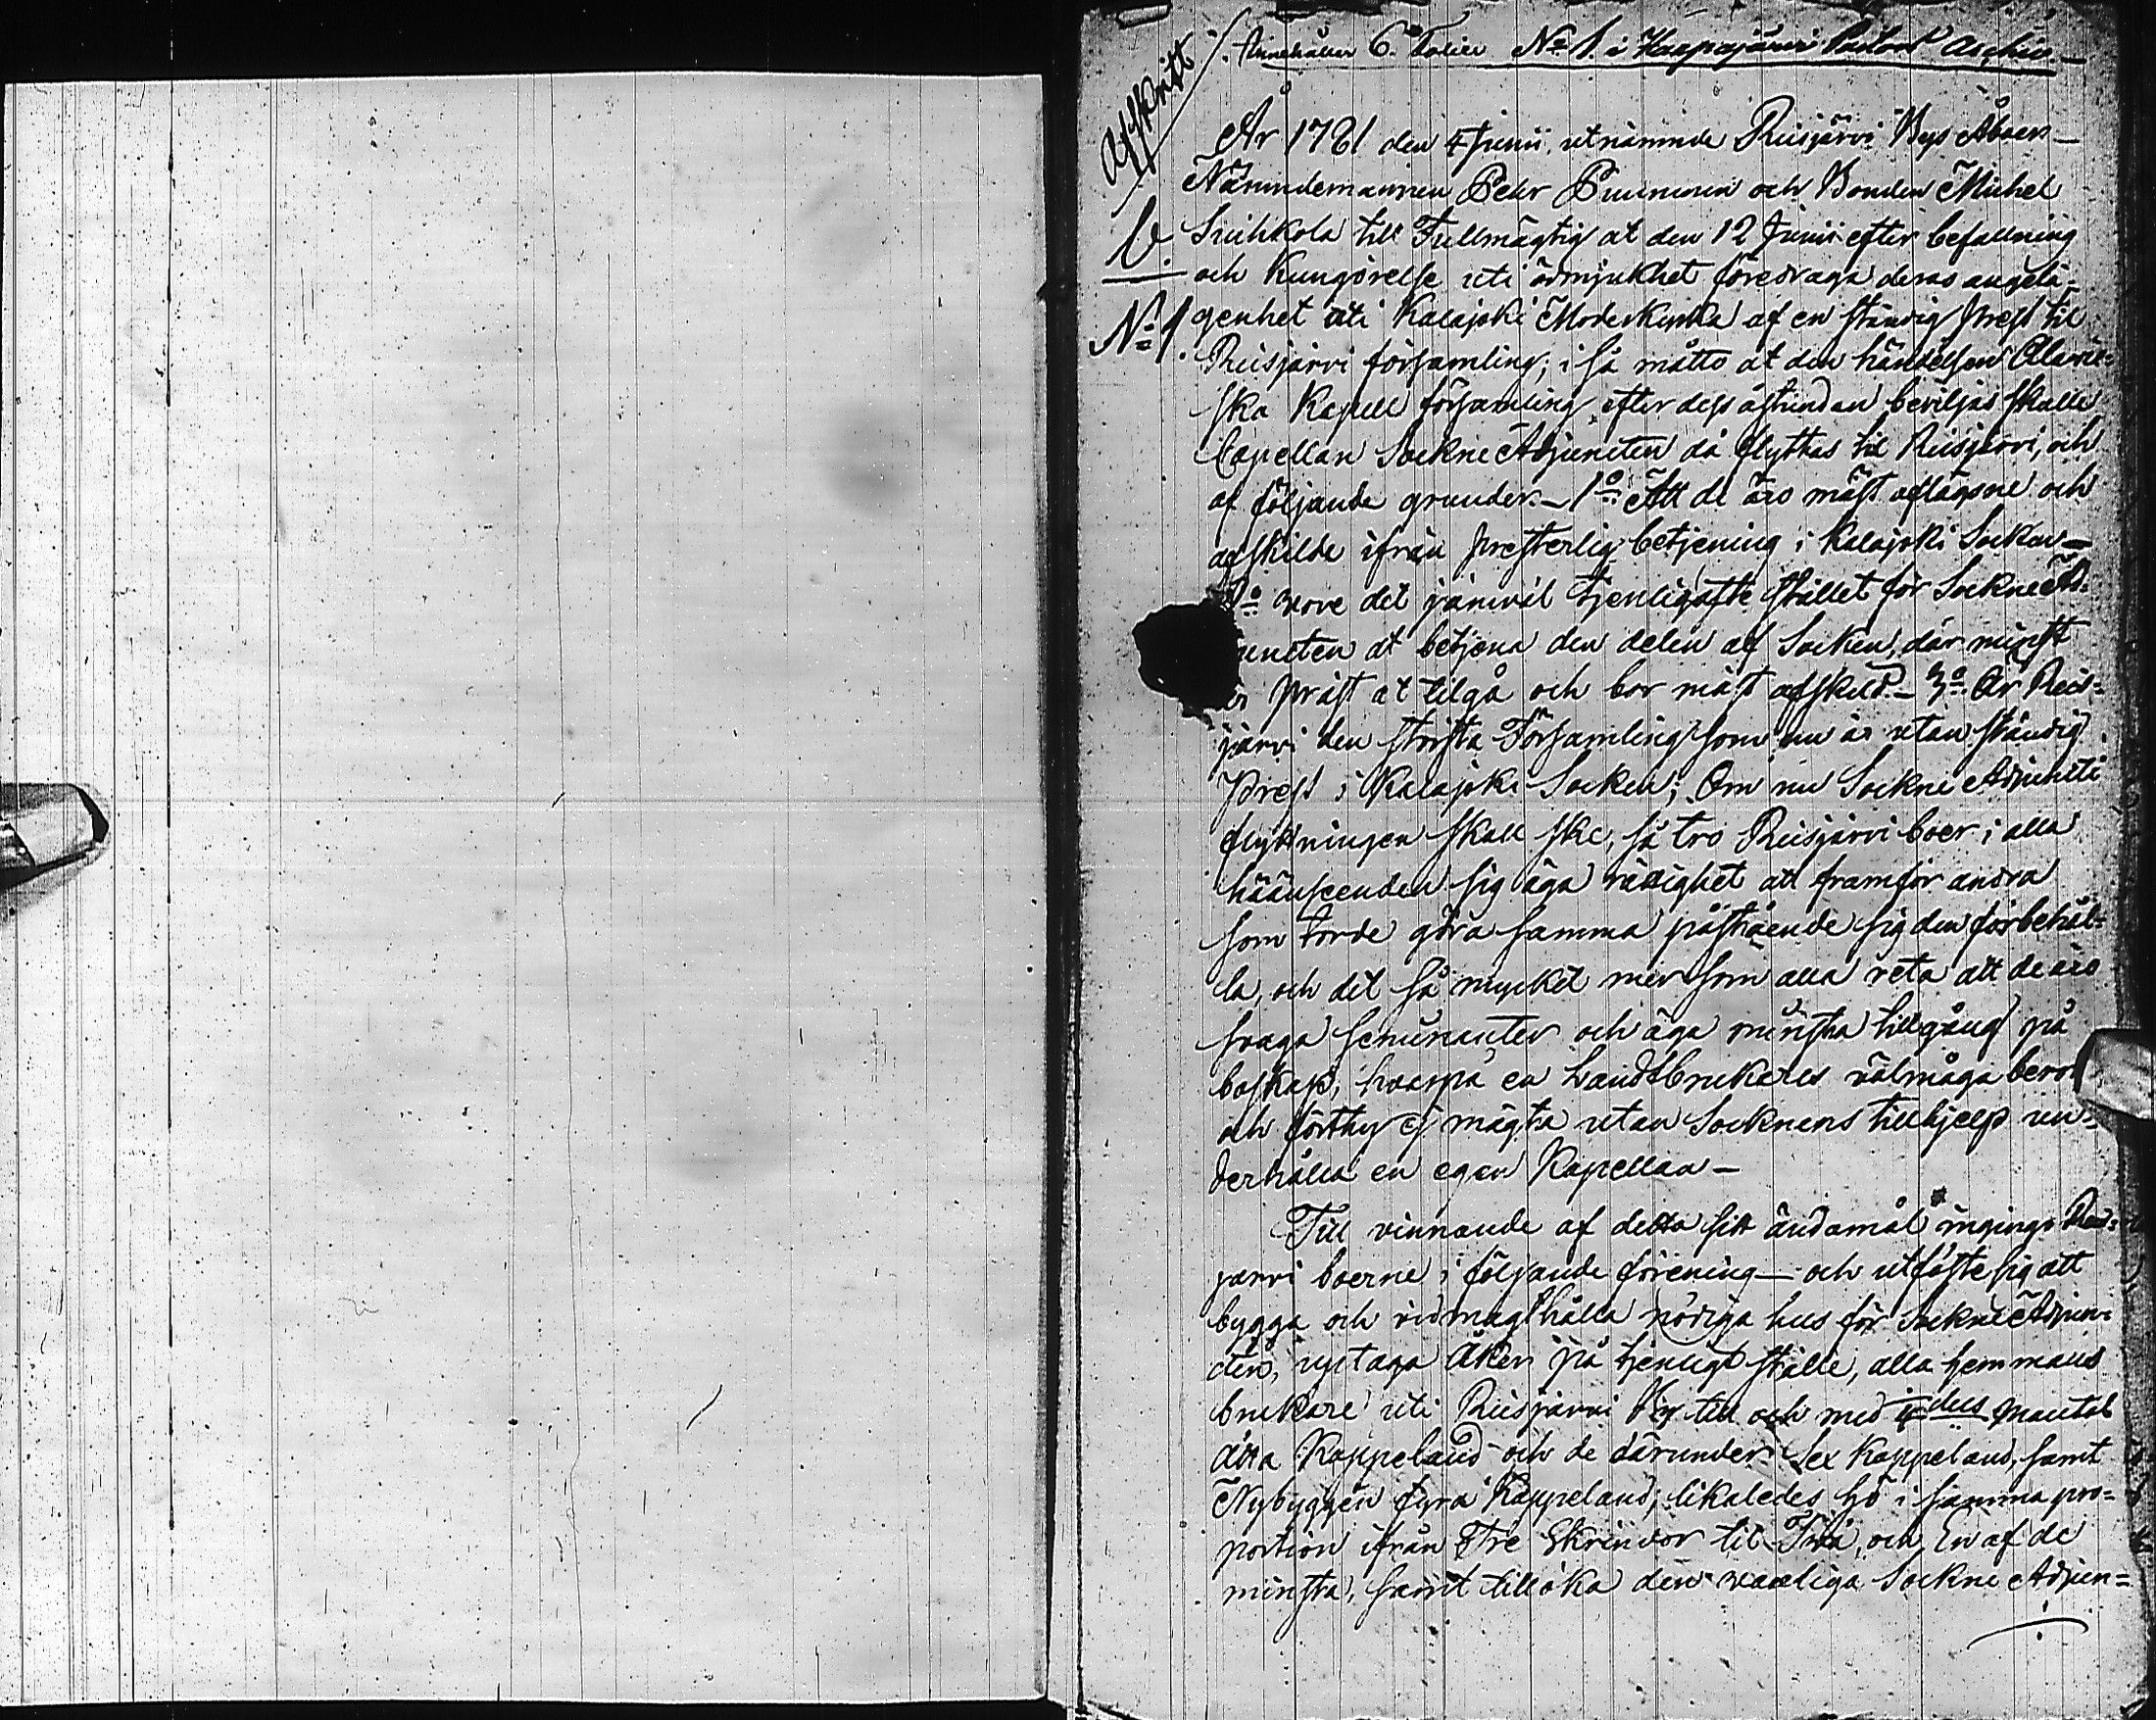 Innehåller 6. Folier No 1. i Haapajärvi Pastors Archiv.
Afskrift
År 1781 den 4 Junii, utnämnde Reisjärvi Bys Åboer
Nämndemannen Pehr Puumun och Bonden Michel
b. Suihkola till Fullmägtig at den 12 Junii efter befallning
och Kungörelse uti ödmjukhet föredraga deras angelä-
No 1. genhet uti Kalajoki Moderkyrka af en ständig Prest til
Reisjärvi församling; i så måtto at den händelsen Alavie-
ska Kapell församling efter dess åstundan beviljas skulle
Capellan Sockne Adjuncten då flyttas til Reisjärvi, och
af följande grunder. 1o Att de äro mäst aflägsne och
afskilde ifrån presterlig betjening i Kalajoki Socken
2o vore det jämväl tjenligaste stället för Sockne Ad-
juncten at betjena den delen af Socken, där minst
är präst at tilgå och bor mäst afskild. 3o Är Reis-
järvi den största Församling som nu är utan ständig
Prest i Kalajoki Socken; Om nu Sockne Adjuncts
flyttningen skall ske, så tro Reisjärvi boer i alla
hänseenden sig äga rättighet att framför andra
som torde göra samma påstående sig den förbehål-
la, och det så mycket mer som alla veta att de äro
svaga hemmanter och äga minsta tillgång på
boskap, hvarpå en Landtbrukares välmåga beror
och förthy ej mägta utan Socknens tillhjelp un-
derhålla en egen Kapellan —
Till vinnande af detta sitt ändamål ingingo Reis-
järvi boerne i följande förening — och utfäste sig att
bygga och vidmagthålla nödiga hus för Sockne Adjun-
cten, uptaga Åker på tjenligt ställe, alla hemmans
brukare uti Reisjärvi By till och med mantal
åtta Kappeland och de därunder Sex Kappeland, samt
Nybyggen fyra Kappeland; likaledes hö i samma pro-
portion ifrån Tre Skrindor til Två, och En af de
minsta, samt tilloka den vanliga Sockne Adjun-